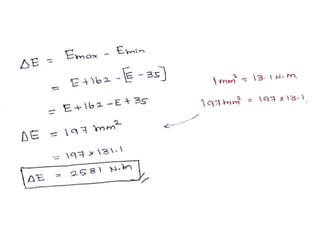 ΔE = Emax - Emin
= E+162 - [E-35]
= E+162-E+35
ΔE = 197 mm²
= 197 x 131.1
ΔE = 2581 N.m
1mm² = 13.1 N.m
197mm² = 197 x 13.1